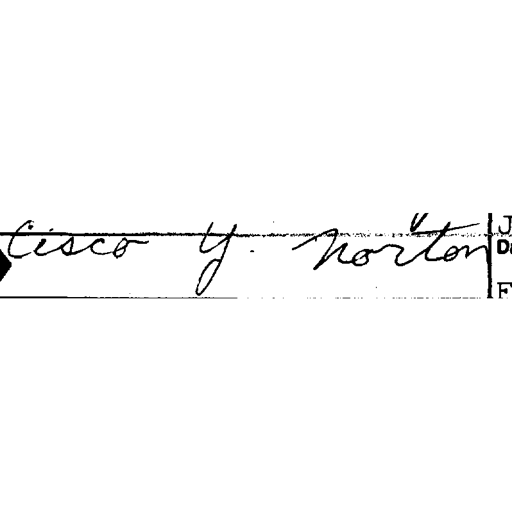 Cisco Y. Norton
J
F